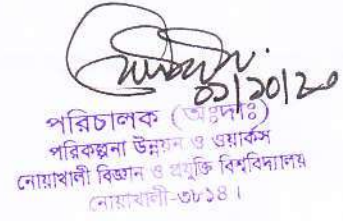 ০১/১০/২০
পরিচালক (অঃদাঃ)
পরিকল্পনা উন্নয়ন ও ওয়ার্কস
নোয়াখালী বিজ্ঞান ও প্রযুক্তি বিশ্ববিদ্যালয়
নোয়াখালী-৩৮১৪।